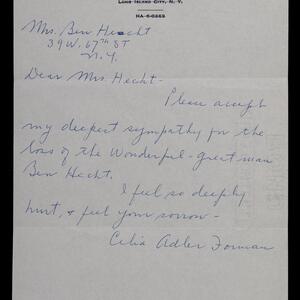 Long Island City, N.Y.
HA-6-0253
Mrs. Ben Hecht
39 W. 67th ST
N.Y.
Dear Mrs. Hecht-
Please accept
my deepest sympathy for the
loss of the Wonderful-great man
Ben Hecht.
I feel so deeply
hurt, & feel your sorrow-
Celia Adler Forman